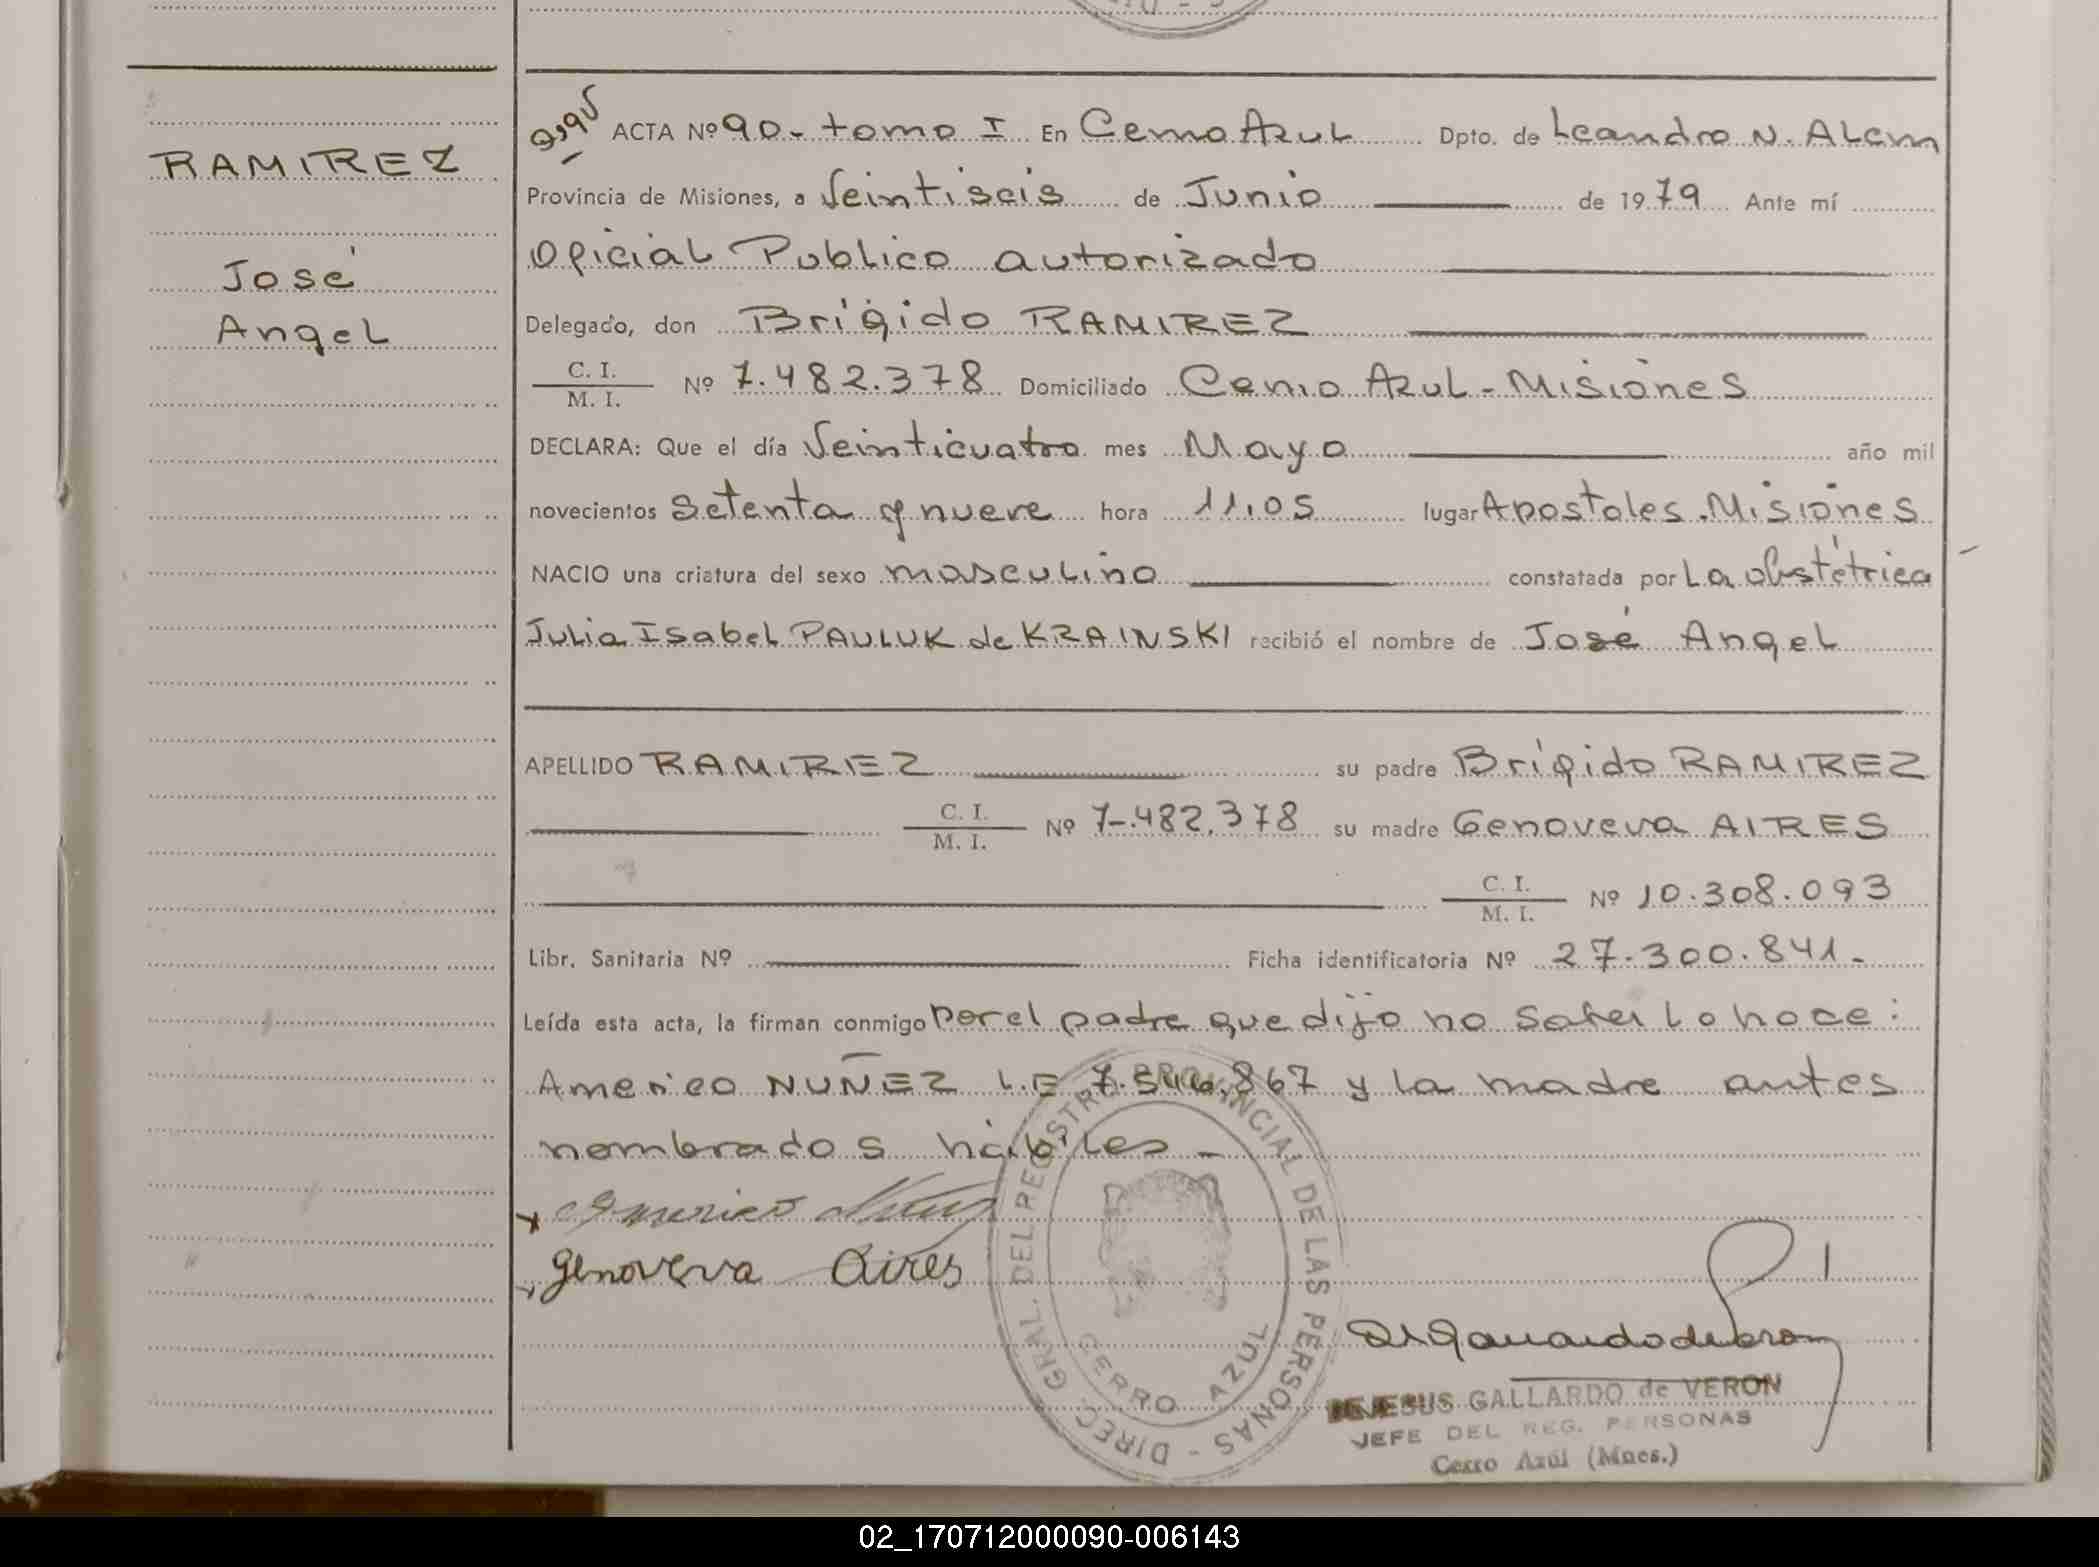 RAMIREZ
José
Angel
ACTA Nº 90.- tomo I En Cerro Azul Dpto. de Leandro N. Alem
Provincia de Misiones, a Veintiseis de Junio de 1979 Ante mí
Oficial Publico autorizado
Delegado, don Brígido RAMIREZ
C. I.
M. I. Nº 7.482.378 Domiciliado Cerro Azul - Misiones
DECLARA: Que el día Veinticuatro mes Mayo año mil
novecientos setenta y nueve hora 11,05 lugar Apostoles. Misiones
NACIO una criatura del sexo masculino constatada por La obstétrica
Julia Isabel PAULUK de KRAINSKI recibió el nombre de José Angel
APELLIDO RAMIREZ su padre Brígido RAMIREZ
C. I.
M. I. Nº 7.482.378 su madre Genoveva AIRES
C. I.
M. I. Nº 10.308.093
Libr. Sanitaria Nº Ficha identificatoria Nº 27.300.841.-
Leída esta acta, la firman conmigo por el padre que dijo no saber lo hace:
Americo NUÑEZ L.E 7.546.867 y la madre antes
nombrados hábiles -
Americo Nuñez
Genoveva Aires
DIREC. GRAL. DEL REGISTRO PROVINCIAL DE LAS PERSONAS -
CERRO AZUL
JESUS GALLARDO de VERON
JEFE DEL REG. PERSONAS
Cerro Azúl (Mnes.)
02_170712000090-006143